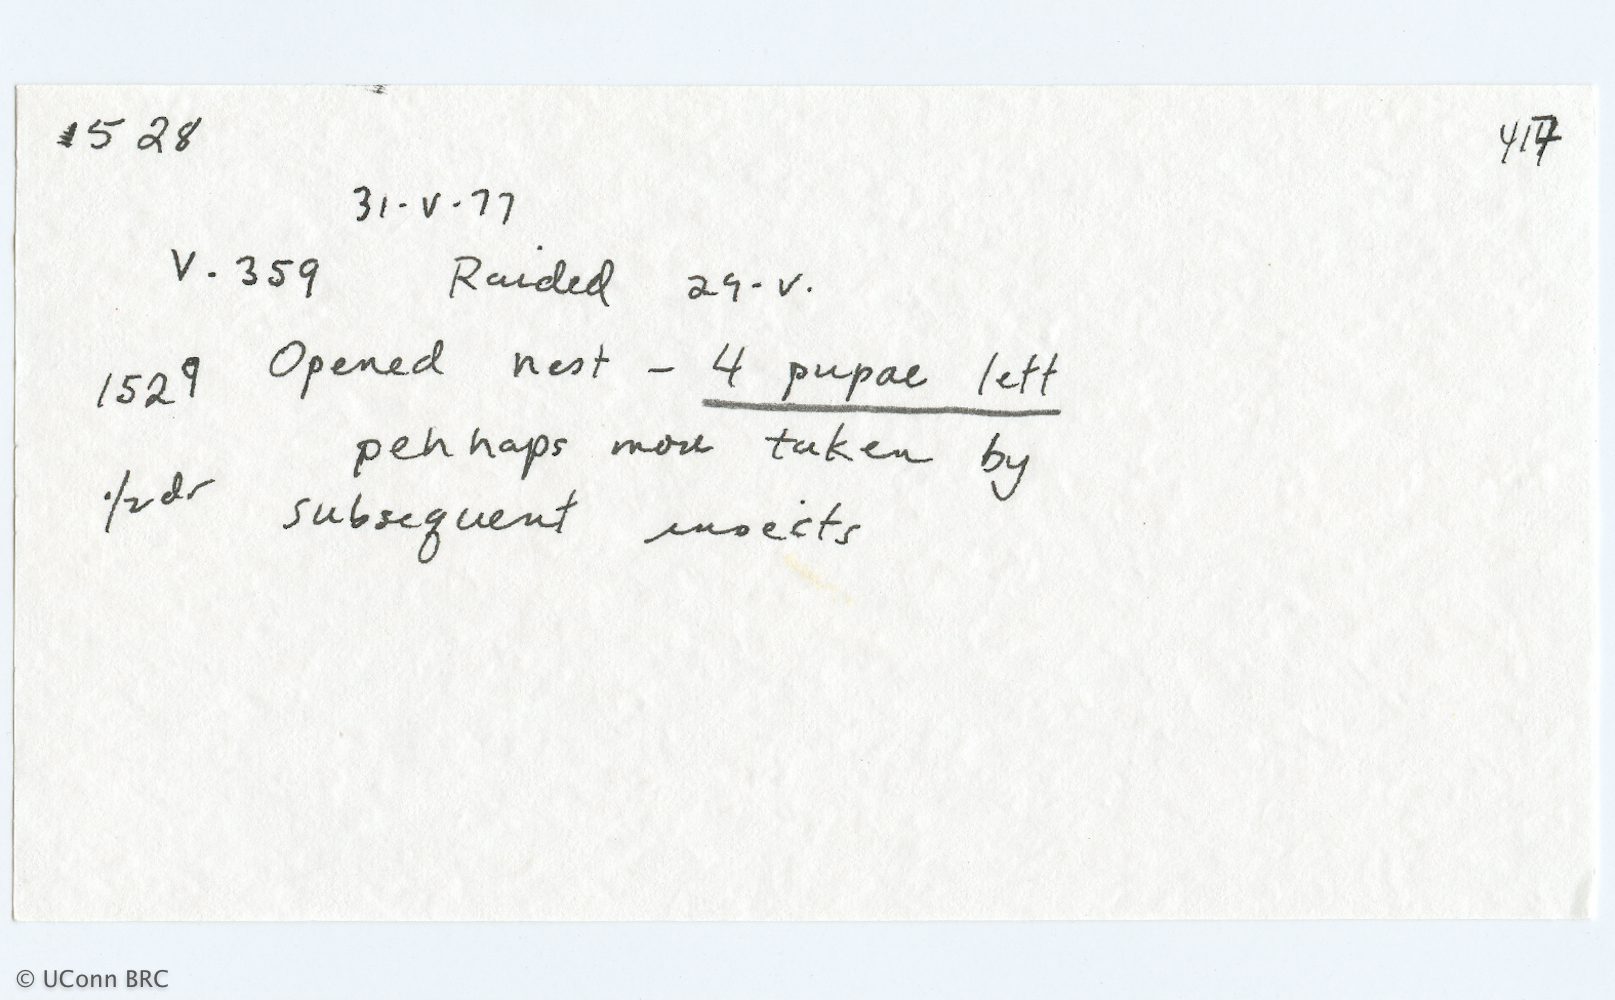 1528
417
31-V-77
V. 359 Raided 29-V.
1529 Opened nest - 4 pupae left
pehhaps more taken by
subsequent insects
© UConn BRC